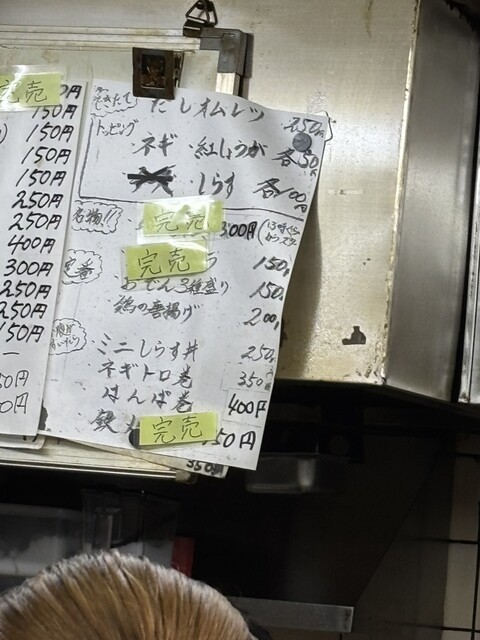 完売 0円
150円
150円
150円
150円
250円
250円
400円
300円
250円
250円
150円
50円
0円
できたて だしオムレツ 350円
トッピング
・ネギ ・紅しょうが 各50円
しらす 各100円
名物!! 完売 300円
定番 完売 150円
おでん3種盛り 150円
鶏の唐揚げ 200円
ミニしらす丼 250円
ネギトロ巻 350円
はんぱ巻 400円
完売 50円
350円